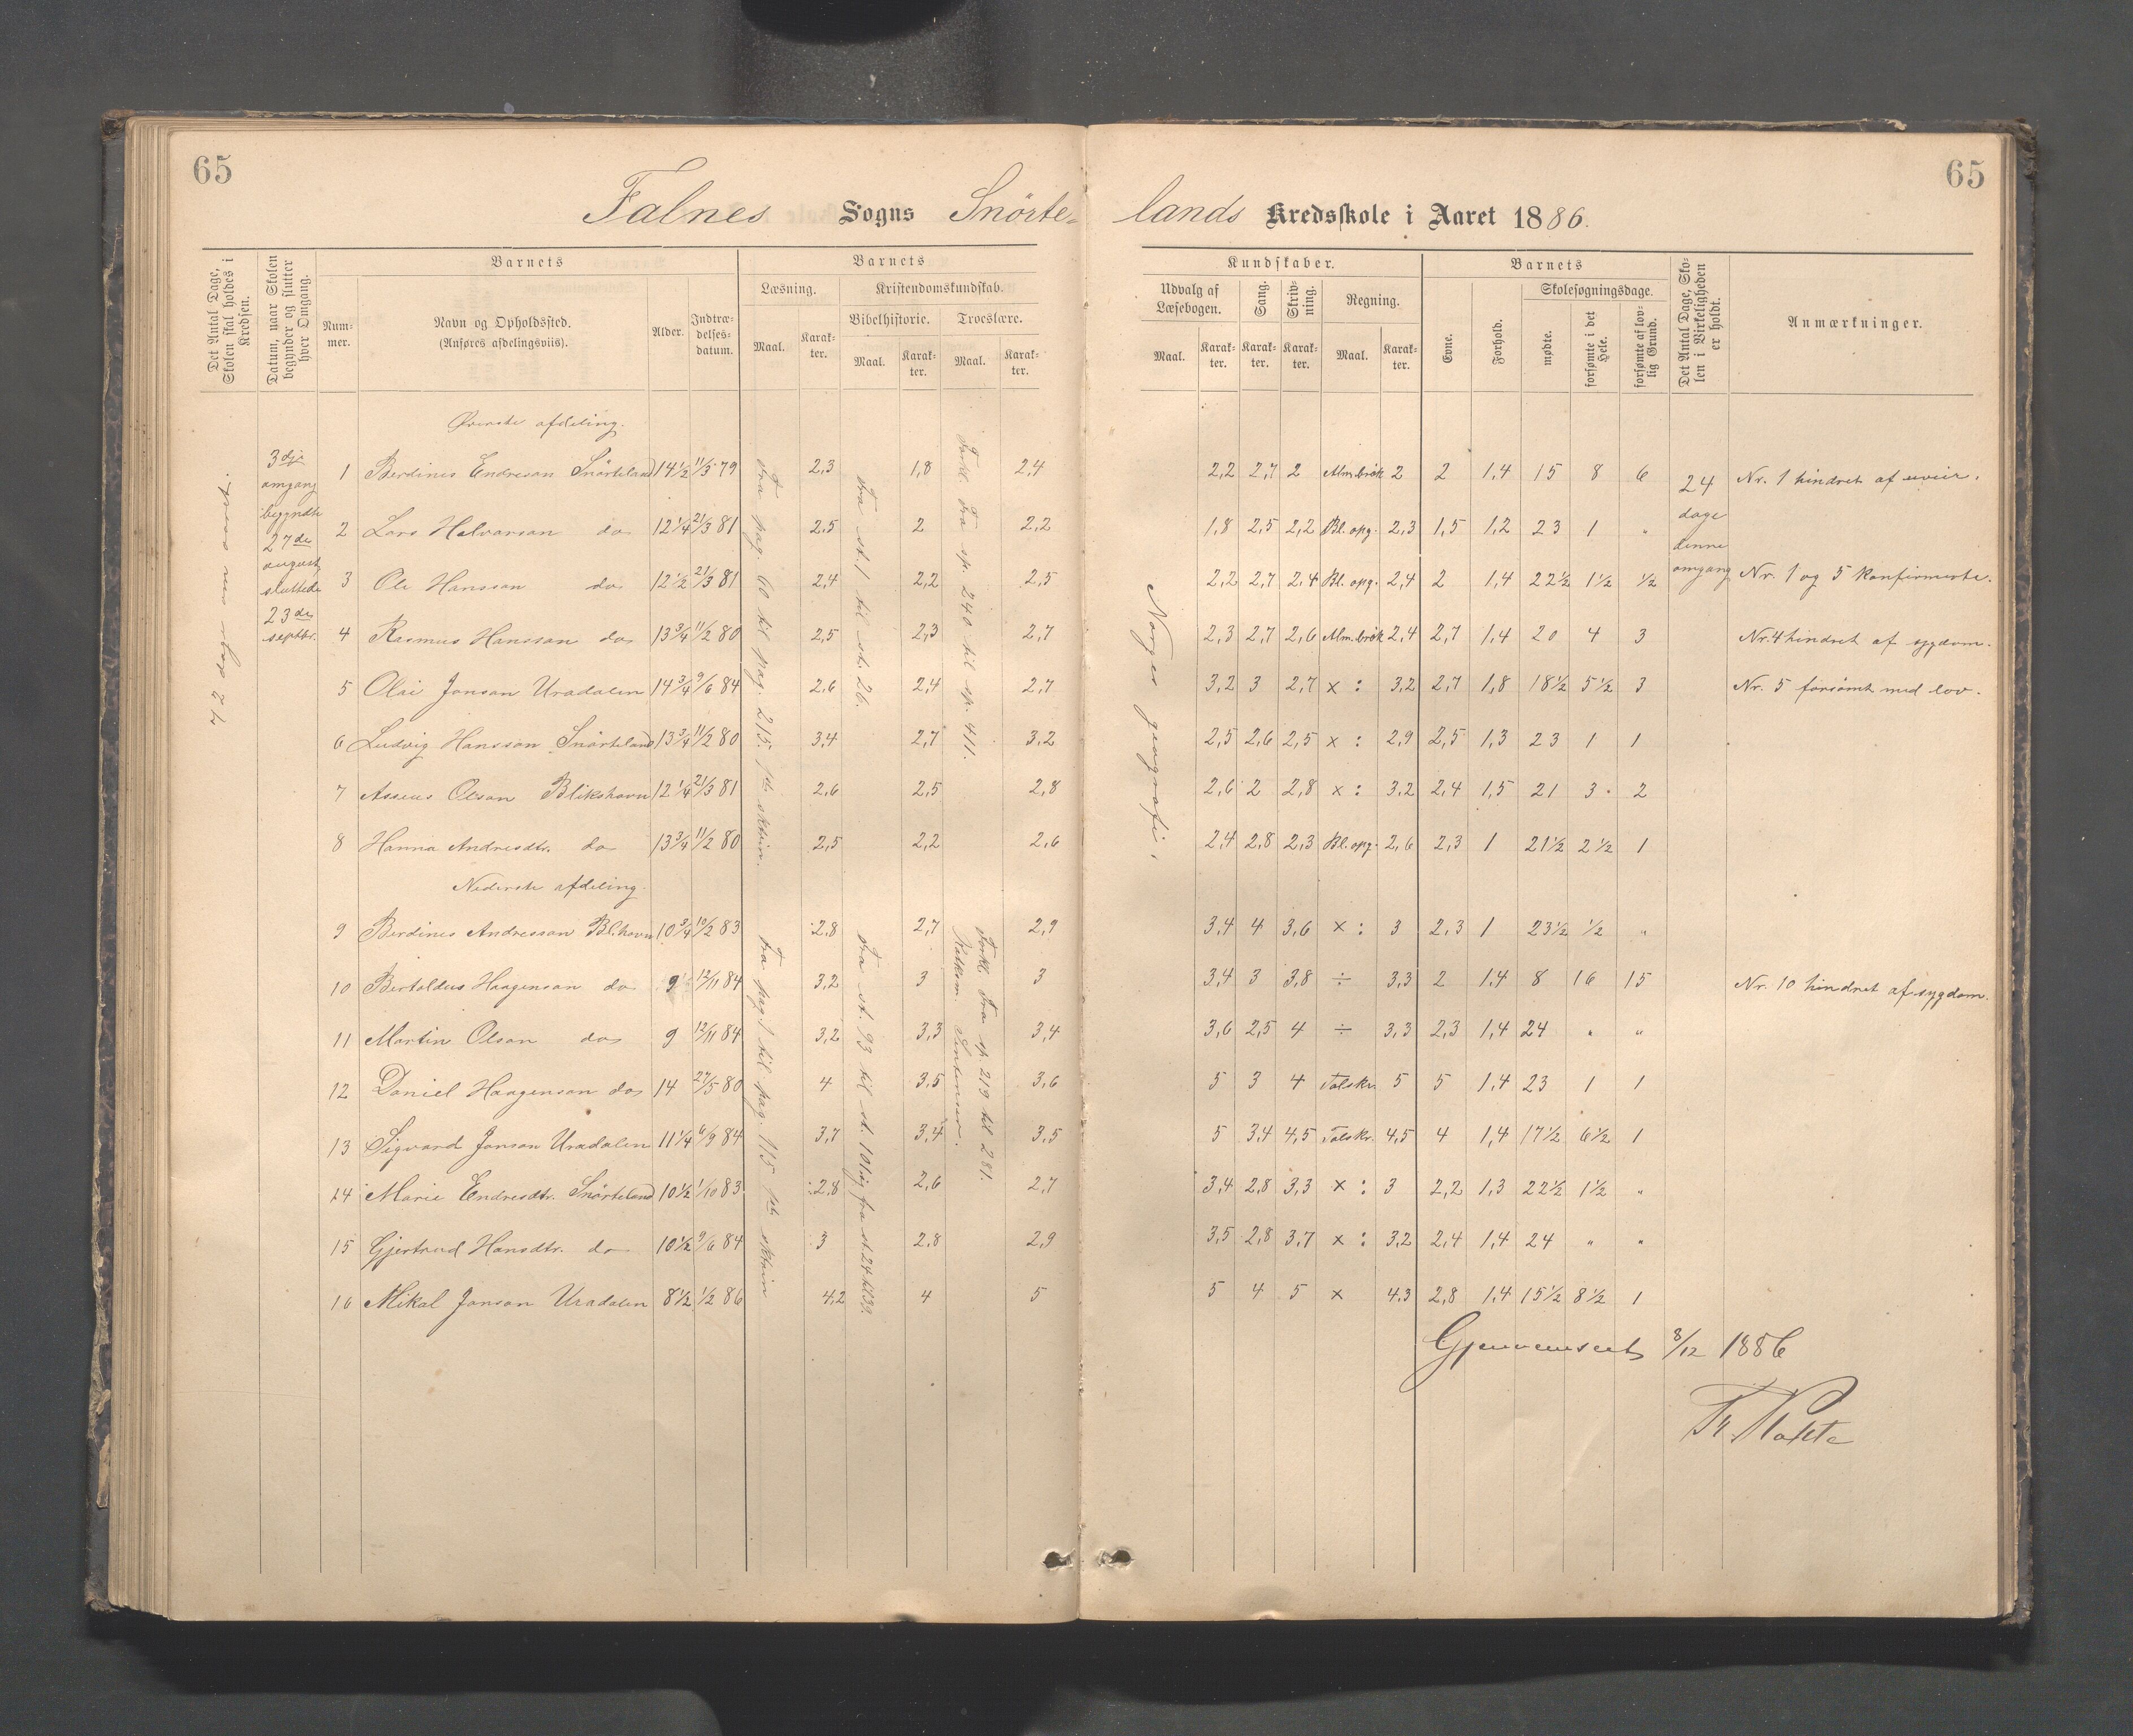 65
65
Falnes Sogns Snörte-
lands Kredsskole i Aaret 1886.
Det Antal Dage, Skolen skal holdes i Kredsen.
Datum, naar Skolen begynder og slutter hver Omgang.
Barnets
Nummer.
Navn og Opholdssted.
(Anføres afdelingsviis).
Alder.
Indtrædelses-datum.
Barnets
Læsning.
Kristendomskundskab.
Bibelhistorie.
Troeslære.
Maal.
Karakter.
Maal.
Karakter.
Maal.
Karakter.
Kundskaber.
Udvalg af Læsebogen.
Sang.
Skrivning.
Regning.
Maal.
Karakter.
Karakter.
Karakter.
Maal.
Karakter.
Barnets
Evne.
Forhold.
Skolesøgningsdage.
mødte.
forsømte i det Hele.
forsømte af lovlig Grund.
Det Antal Dage, Skolen i Virkeligheden er holdt.
Anmærkninger.
72 dage
3dje omgang begyndte 27de august sluttede 23de septbr.
Øverste afdeling.
1 Berdines Endreson Snörteland 14½ 11/3 79 2,3 1,8 2,4 2,2 2,7 2 Alm.brök 2 2 1,4 15 8 6 Nr. 1 hindret af uveir.
2 Lars Halvorson do 12¼ 21/3 81 2,5 2 2,2 1,8 2,5 2,2 Bl. opg. 2,3 1,5 1,2 23 1 "
3 Ole Hansson do 12½ 21/3 81 2,4 2,2 2,5 2,2 2,7 2,4 Bl. opg. 2,4 2 1,4 22½ 1½ ½ Nr. 1 og 5 konfirmerte.
4 Rasmus Hansson do 13¾ 11/2 80 2,5 2,3 2,7 2,3 2,7 2,6 Alm.brök 2,4 2,7 1,4 20 4 3 Nr. 4 hindret af sygdom.
5 Olai Jonson Uradalen 14¾ 9/6 84 2,6 2,4 2,7 3,2 3 2,7 × : 3,2 2,7 1,8 18½ 5½ 3 Nr. 5 forsömt med lov.
6 Ludvig Hansson Snörteland 13¾ 11/2 80 3,4 2,7 3,2 2,5 2,6 2,5 × : 2,9 2,5 1,3 23 1 1
7 Asseus Olson Blikshavn 12¼ 21/3 81 2,6 2,5 2,8 2,6 2 2,8 × : 3,2 2,4 1,5 21 3 2
8 Hanna Andresdtr. do 13¾ 11/2 80 2,5 2,2 2,6 2,4 2,8 2,3 Bl. opg. 2,6 2,3 1 21½ 2½ 1
Fra pag. 60 til pag. 215. 1ste
Fra st. 1 til st. 26.
Forkl. Fra sp. 240 til sp. 411.
Norges geografi.
24 dage denne omgang
Nederste afdeling.
9 Berdines Andresson Bl.havn 10¾ 10/2 83 2,8 2,7 2,9 3,4 4 3,6 × : 3 2,3 1 23½ ½ "
10 Bertoldus Haagenson do 9 12/11 84 3,2 3 3 3,4 3 3,8 ÷ 3,3 2 1,4 8 16 15 Nr. 10 hindret af sygdom.
11 Martin Olson do 9 12/11 84 3,2 3,3 3,4 3,6 2,5 4 ÷ 3,3 2,3 1,4 24 " "
12 Daniel Haagenson do 14 27/5 80 4 3,5 3,6 5 3 4 Talskr. 5 5 1,4 23 1 1
13 Sigvard Jonson Uradalen 11¼ 6/9 84 3,7 3,4 3,5 5 3,4 4,5 Talskr. 4,5 4 1,4 17½ 6½ 1
14 Marie Endresdtr. Snörteland 10½ 1/10 83 2,8 2,6 2,7 3,4 2,8 3,3 × : 3 2,2 1,3 22½ 1½ "
15 Gjertrud Hansdtr. do 10½ 9/6 84 3 2,8 2,9 3,5 2,8 3,7 × : 3,2 2,4 1,4 24 " "
16 Mikal Jonson Uradalen 8½ ½ 86 4,2 4 5 5 4 5 × 4,3 2,8 1,4 15½ 8½ 1
Fra pag. 1 til pag. 115 1ste
Fra st. 93 til st. 101 og fra st. 24 til 39.
Forkl. Fra sp. 219 til 281.
Gjennemseet 8/12 1886